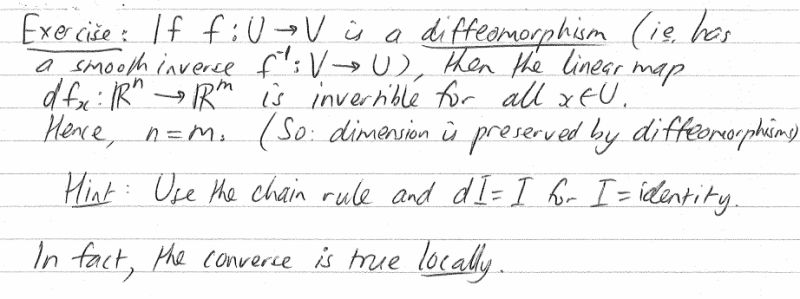 Exercise: If f: U → V is a diffeomorphism (ie. has
a smooth inverse f⁻¹: V → U), then the linear map
dfₓ: ℝⁿ → ℝᵐ is invertible for all x ∈ U.
Hence, n = m. (So: dimension is preserved by diffeomorphisms)
Hint: Use the chain rule and dI = I for I = identity.
In fact, the converse is true locally.